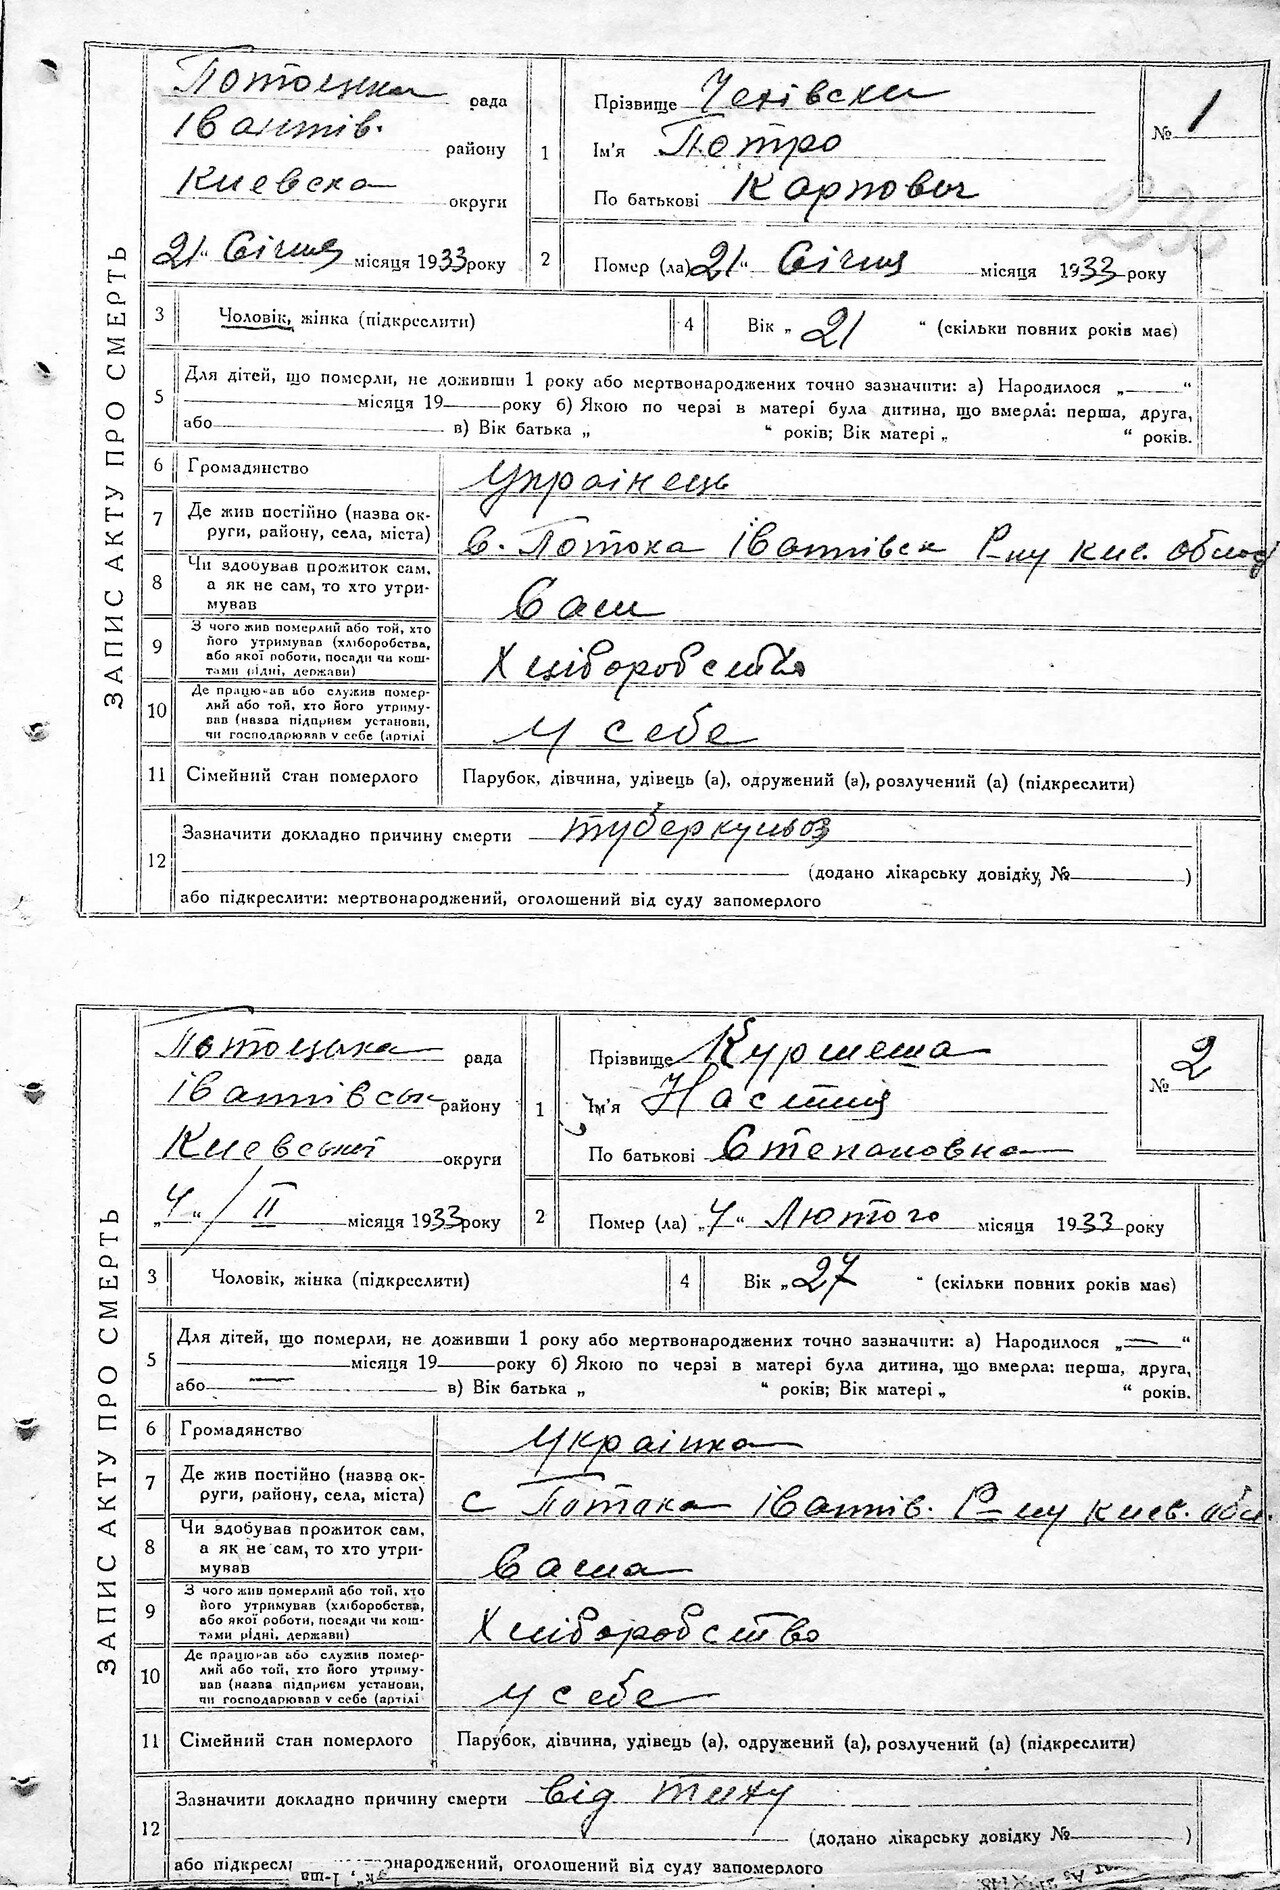 ЗАПИС АКТУ ПРО СМЕРТЬ
Потоцька рада
Іванків. району
Киевска округи
21 Січня місяця 1933 року
1
Прізвище
Ім'я Петро
По батькові Карпович
№ 1
2
Помер (ла) 21 " Січня місяця 1933 року
3 Чоловік, жінка (підкреслити)
4 Вік „ 21 " (скільки повних років має)
5 Для дітей, що померли, не доживши 1 року або мертвонароджених точно зазначити: а) Народилося „ — "
місяця 19 року б) Якою по черзі в матері була дитина, що вмерла: перша, друга,
або в) Вік батька „ " років; Вік матері „ " років.
6 Громадянство Українець
7 Де жив постійно (назва ок-
руги, району, села, міста)
с. Потока Іванківск Р-ну Киє.
8 Чи здобував прожиток сам,
а як не сам, то хто утри-
мував
Сам
9 З чого жив померлий або той, хто
його утримував (хліборобства,
або якої роботи, посади чи кош-
тами рідні, держави)
Хліборобства
10 Де працював або служив помер-
лий або той, хто його утриму-
вав (назва підприєм установи,
чи господарював у себе (артілі
у себе
11 Сімейний стан померлого Парубок, дівчина, удівець (а), одружений (а), розлучений (а) (підкреслити)
12 Зазначити докладно причину смерти туберкульоз
(додано лікарську довідку, № )
або підкреслити: мертвонароджений, оголошений від суду запомерлого
ЗАПИС АКТУ ПРО СМЕРТЬ
Потоцька рада
Іванківськ району
Киевської округи
„4" / II місяця 1933 року
1
Прізвище
Ім'я Настия
По батькові Степановна
№ 2
2
Помер (ла) „4" Лютого місяця 1933 року
3 Чоловік, жінка (підкреслити)
4 Вік „ 27 " (скільки повних років має)
5 Для дітей, що померли, не доживши 1 року або мертвонароджених точно зазначити: а) Народилося „ — "
місяця 19 року б) Якою по черзі в матері була дитина, що вмерла: перша, друга,
або — в) Вік батька „ " років; Вік матері „ " років.
6 Громадянство Українка
7 Де жив постійно (назва ок-
руги, району, села, міста)
с Потока Іванків. Р-ну Киев. обл.
8 Чи здобував прожиток сам,
а як не сам, то хто утри-
мував
Сама
9 З чого жив померлий або той, хто
його утримував (хліборобства,
або якої роботи, посади чи кош-
тами рідні, держави)
Хліборобство
10 Де працював або служив помер-
лий або той, хто його утриму-
вав (назва підприєм установи,
чи господарював у себе (артілі
у себе
11 Сімейний стан померлого Парубок, дівчина, удівець (а), одружений (а), розлучений (а) (підкреслити)
12 Зазначити докладно причину смерти від тифу
(додано лікарську довідку № )
або підкресл онароджений, оголошений від суду запомерлого